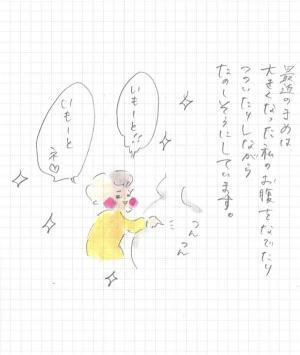 最近の は
大きくなった私のお腹をなでたり
つついたりしながら
たのしそうにしています。
いもーと!!
いもーと
ネ♡
つん
つん